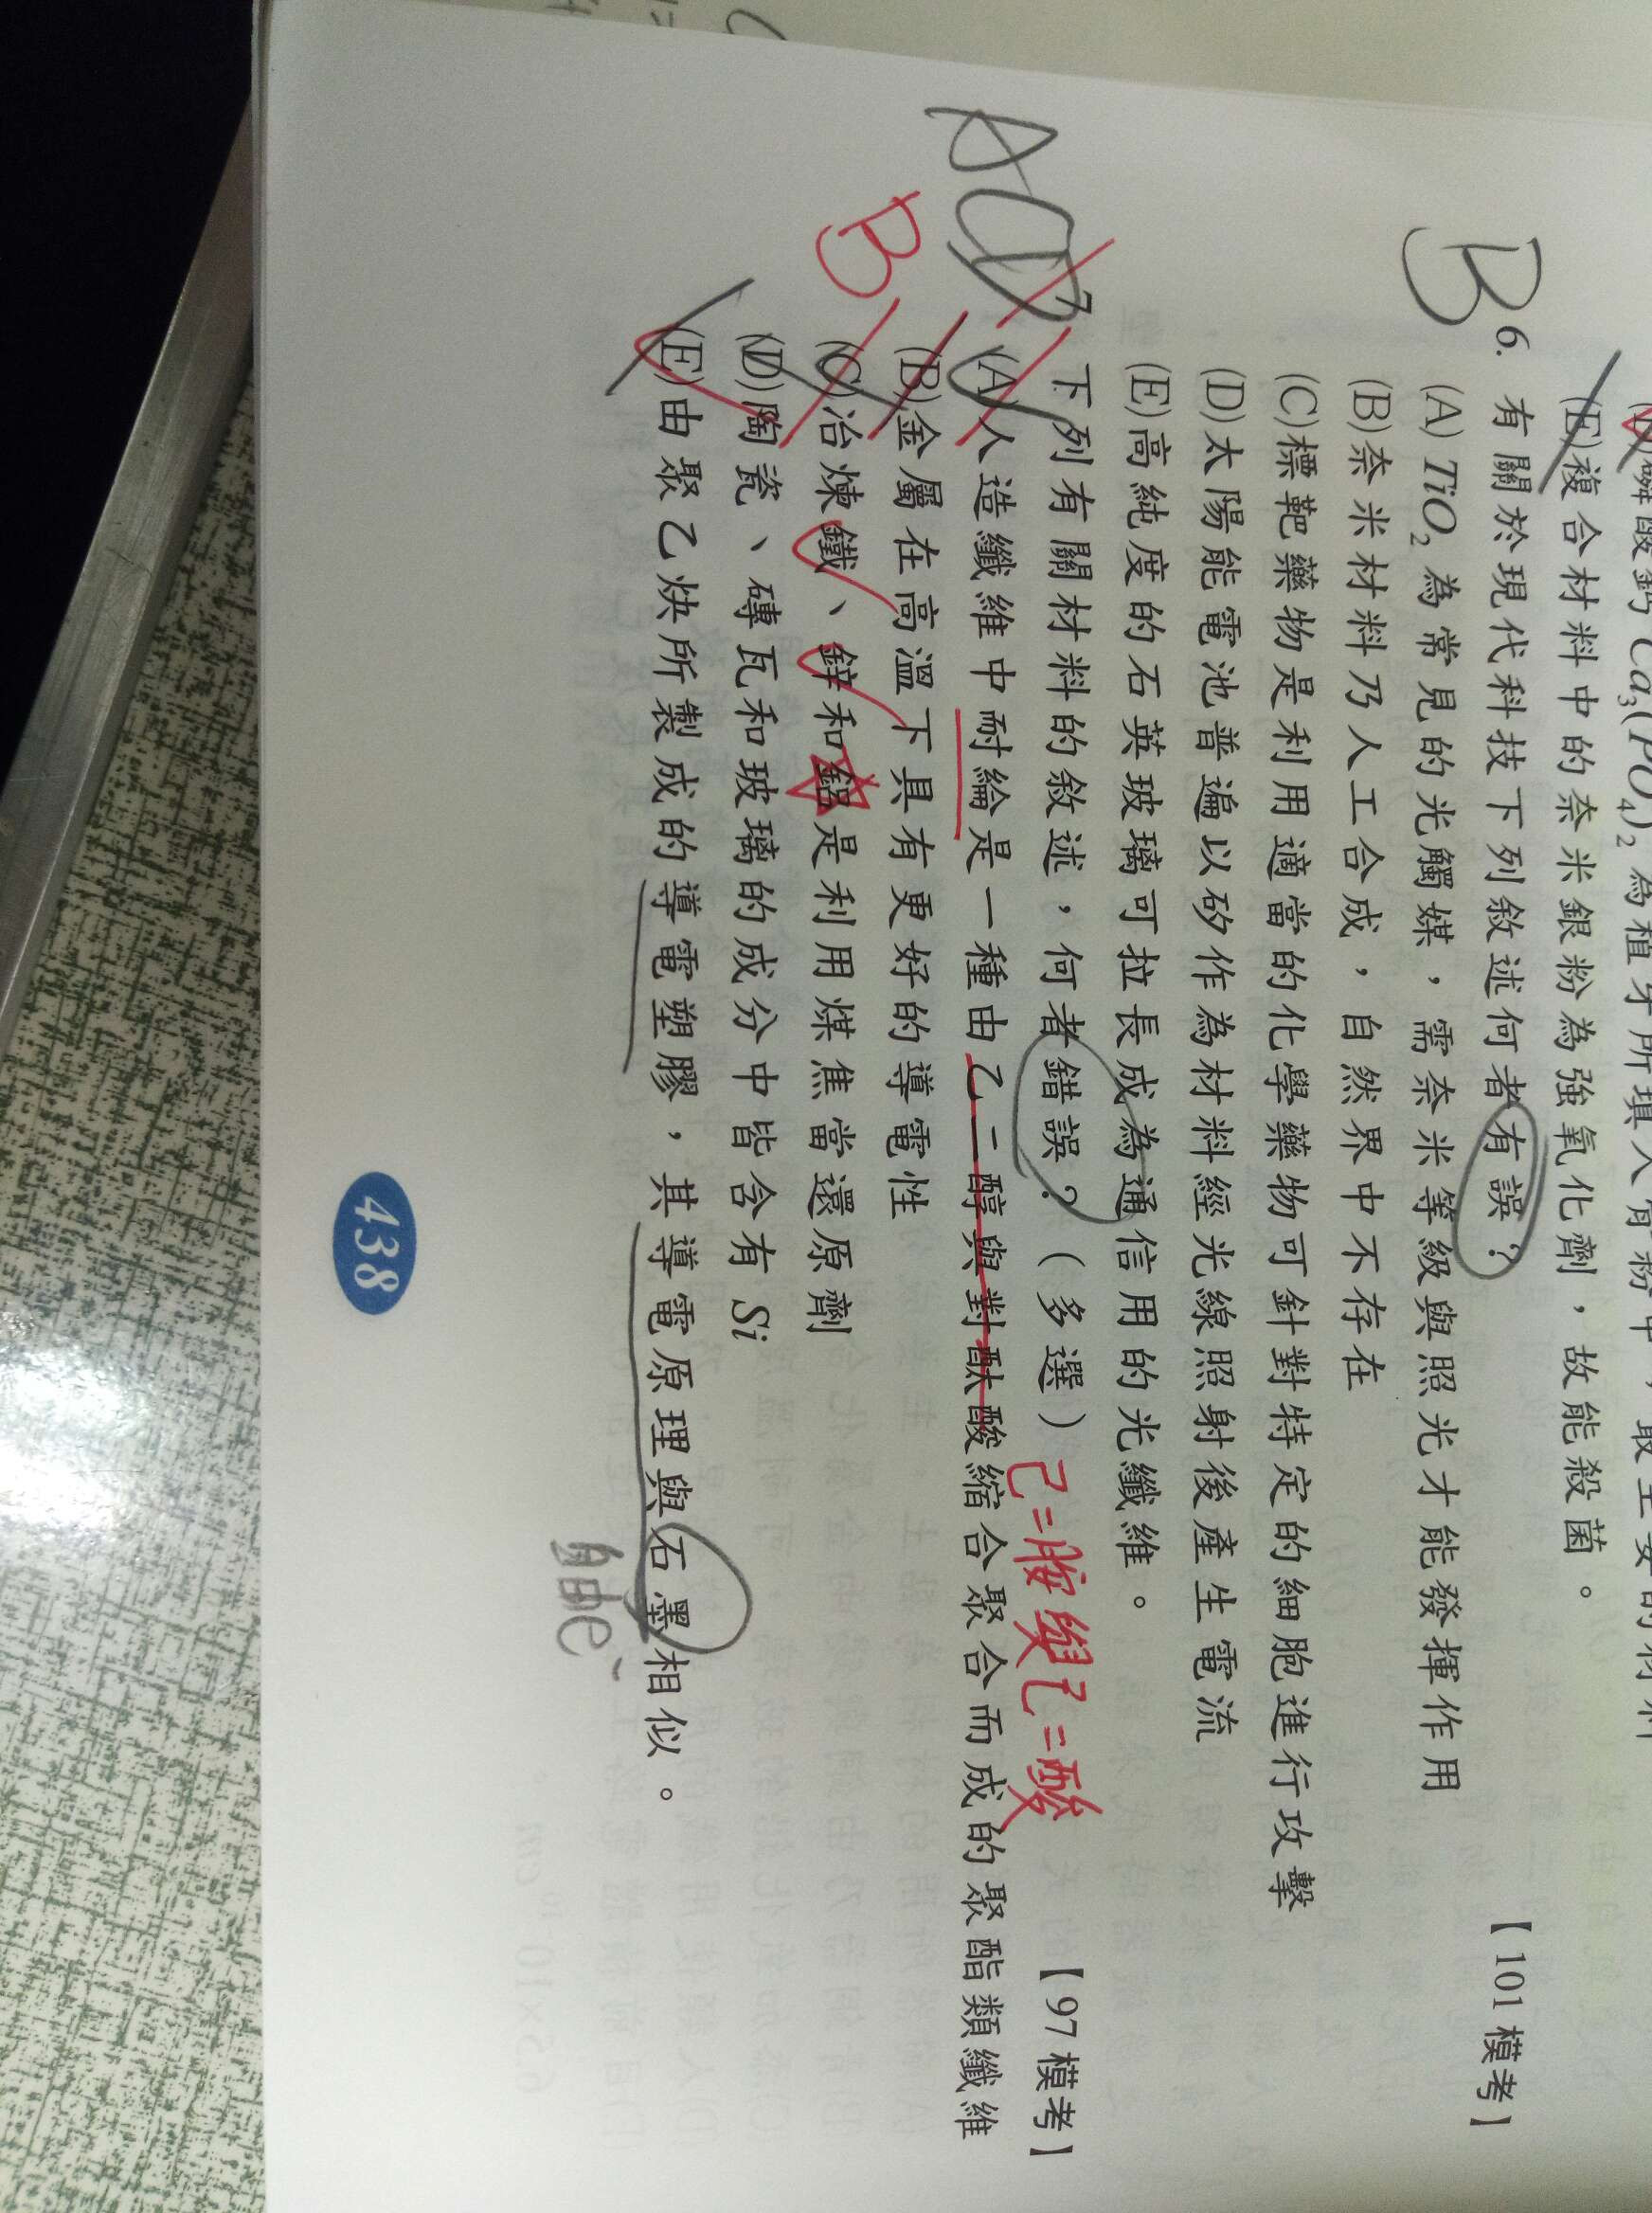 磷酸鈣 Ca₃(PO₄)₂ 為植牙所填入骨粉中，最主要的材料
(E)複合材料中的奈米銀粉為強氧化劑，故能殺菌。
B 6. 有關於現代科技下列敘述何者有誤？ 【101模考】
(A) TiO₂ 為常見的光觸媒，需奈米等級與照光才能發揮作用
(B)奈米材料乃人工合成，自然界中不存在
(C)標靶藥物是利用適當的化學藥物可針對特定的細胞進行攻擊
(D)太陽能電池普遍以矽作為材料經光線照射後產生電流
(E)高純度的石英玻璃可拉長成為通信用的光纖維。
7 下列有關材料的敘述，何者錯誤？（多選） 【97模考】
己=胺與己=酸
(A)人造纖維中耐綸是一種由乙二醇與對酞酸縮合聚合而成的聚酯類纖維
B
(B)金屬在高溫下具有更好的導電性
(C)冶煉鐵、鋅和鋁是利用煤焦當還原劑
(D)陶瓷、磚瓦和玻璃的成分中皆含有 Si
(E)由聚乙炔所製成的導電塑膠，其導電原理與石墨相似。
438